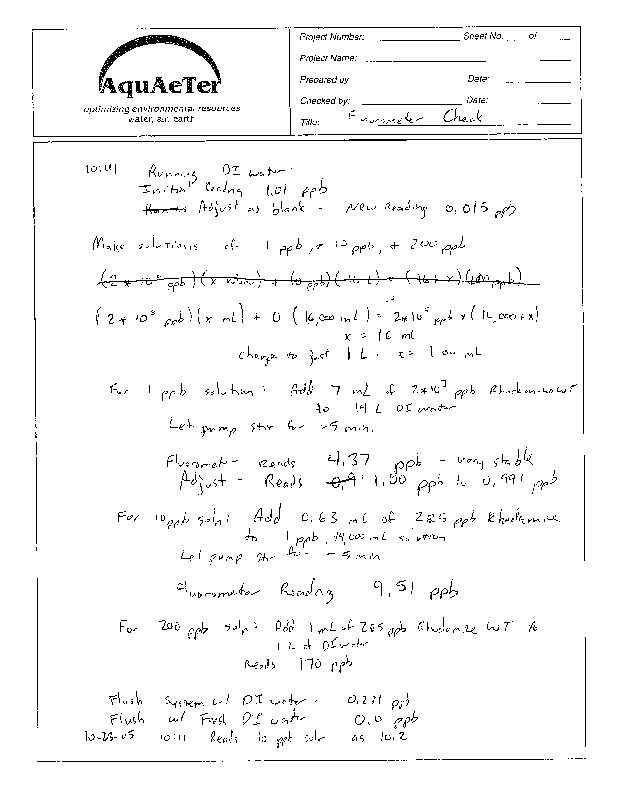 AquAeTer
optimizing environmental resources
water, air, earth
Project Number: Sheet No. of
Project Name:
Prepared by Date:
Checked by: Date:
Title: Fluorometer Check
10:41 Running DI water.
Initial reading 1.01 ppb
Adjust as blank - New Reading 0.015 ppb
Make solutions of 1 ppb, + 10 ppb, + 200 ppb
(2 * 10⁵ ppb)(x mL) + 0 (16,000 mL) = 2*10² ppb * (16,000+x)
x = 16 mL
Change to just 1 L. x = 1.00 mL
For 1 ppb solution: Add 7 mL of 2*10³ ppb Rhodamine WT
to 14 L DI water
Let pump stir for ~5 min.
Fluorometer reads 4.37 ppb - very stable
Adjust - Reads 1.00 ppb to 0.991 ppb
For 10 ppb soln: Add 0.63 mL of 2E5 ppb Rhodamine
to 1 ppb, 14,000 mL solution
Let pump stir for ~5 min
Fluorometer Reading 9.51 ppb
For 200 ppb soln: Add 1 mL of 2E5 ppb Rhodamine WT to
1 L of DI water
Reads 170 ppb
Flush System w/ DI water - 0.231 ppb
Flush w/ Fresh DI water 0.0 ppb
10-23-05 10:11 Reads 10 ppb soln as 10.2